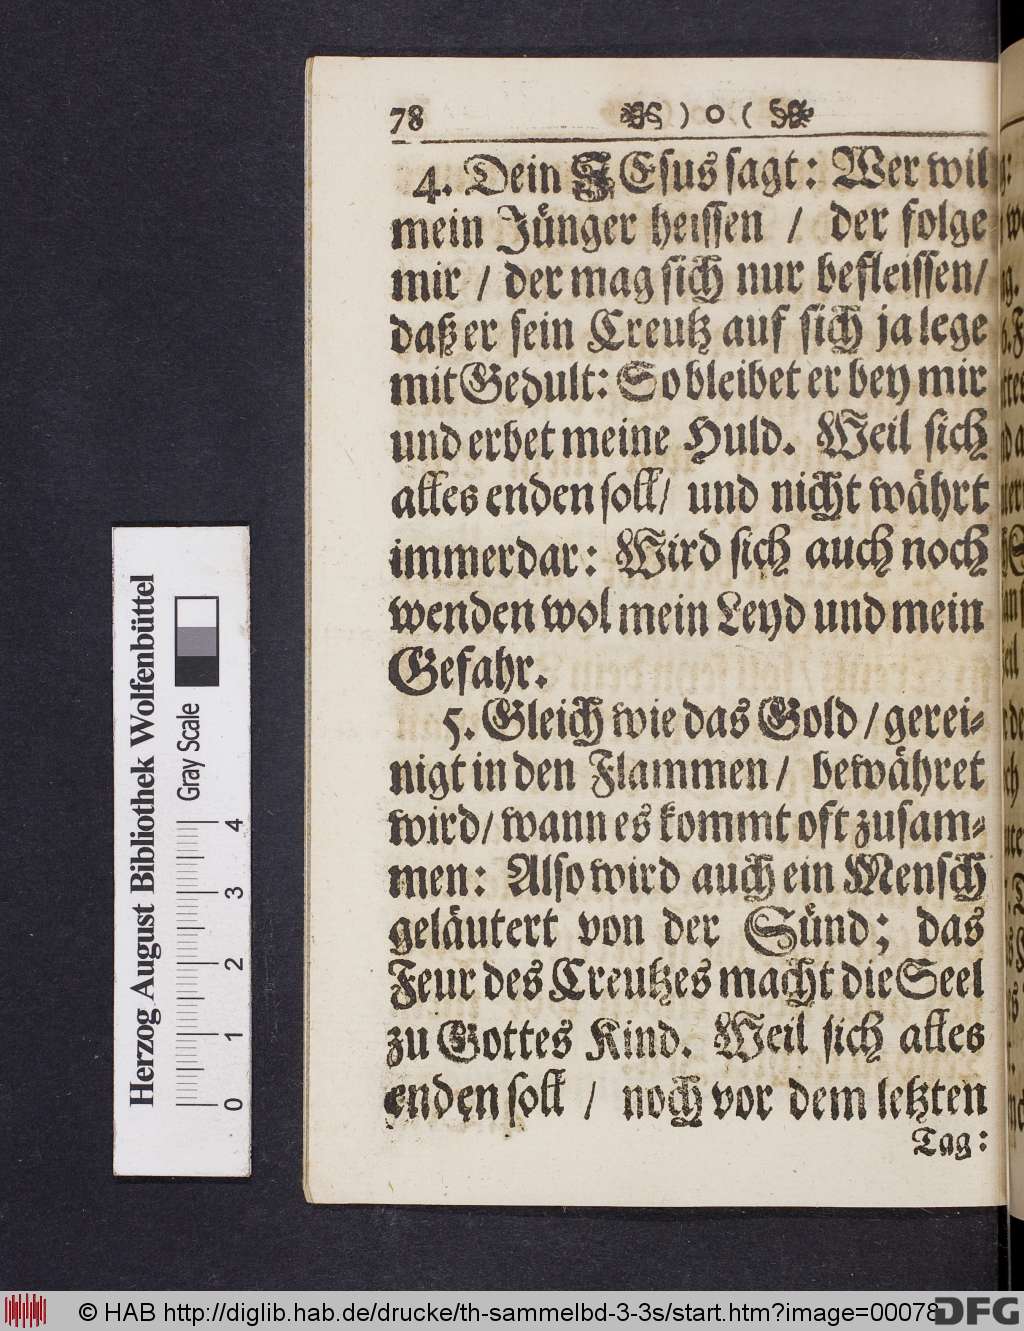 78 ) o (
4. Dein JEsus sagt: Wer wil
mein Jünger heissen / der folge
mir / der mag sich nur befleissen/
daß er sein Creutz auf sich ja lege
mit Gedult: So bleibet er bey mir
und erbet meine Huld. Weil sich
alles enden soll/ und nicht währt
immerdar: Wird sich auch noch
wenden wol mein Leyd und mein
Gefahr.
5. Gleich wie das Gold / gerei-
nigt in den Flammen / bewähret
wird/ wann es kommt oft zusam-
men: Also wird auch ein Mensch
geläutert von der Sünd; das
Feur des Creutzes macht die Seel
zu Gottes Kind. Weil sich alles
enden soll / noch vor dem letzten
Tag:
Herzog August Bibliothek Wolfenbüttel
Gray Scale
0 1 2 3 4
© HAB http://diglib.hab.de/drucke/th-sammelbd-3-3s/start.htm?image=00078
DFG